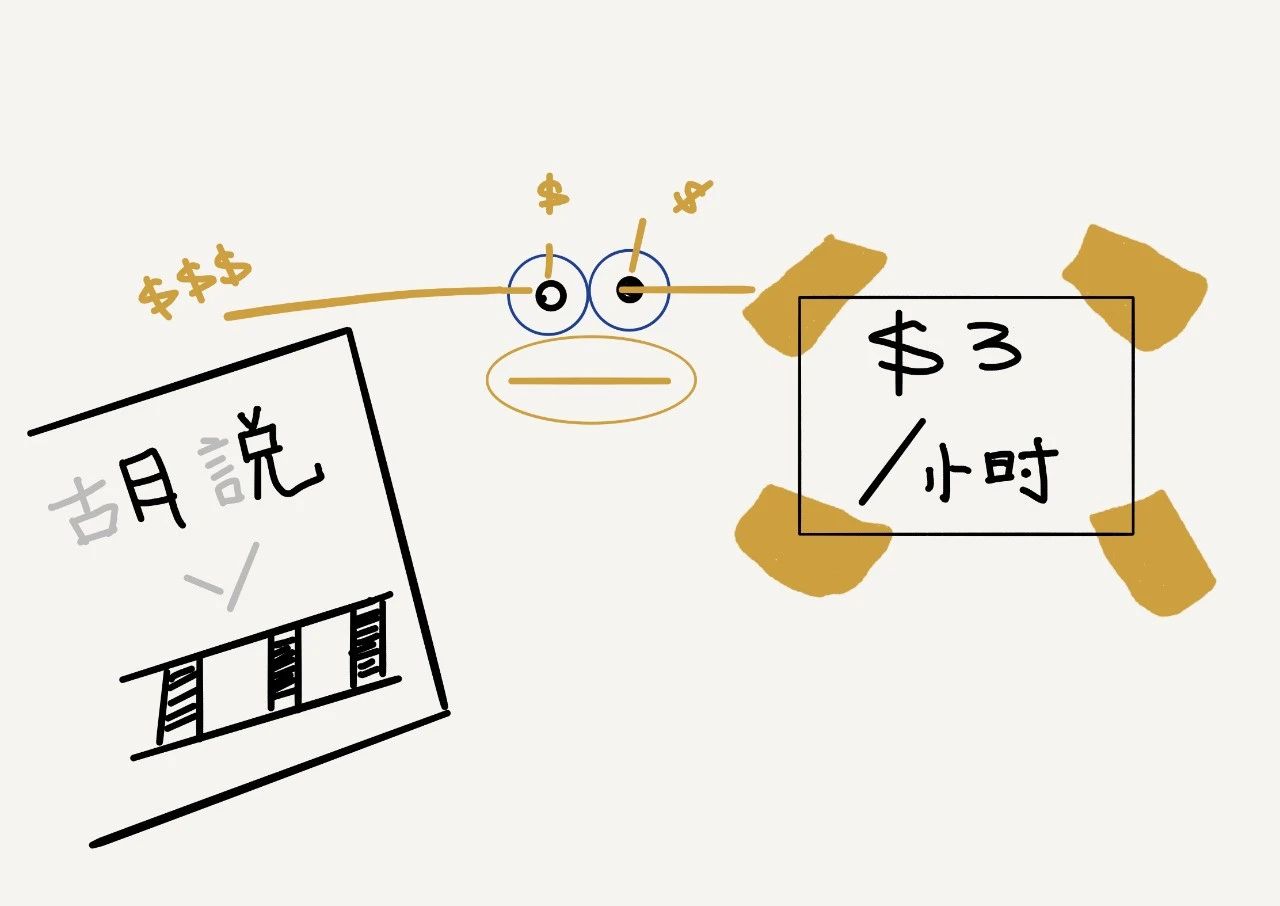 $$$
$
$
胡説
$3
/小时